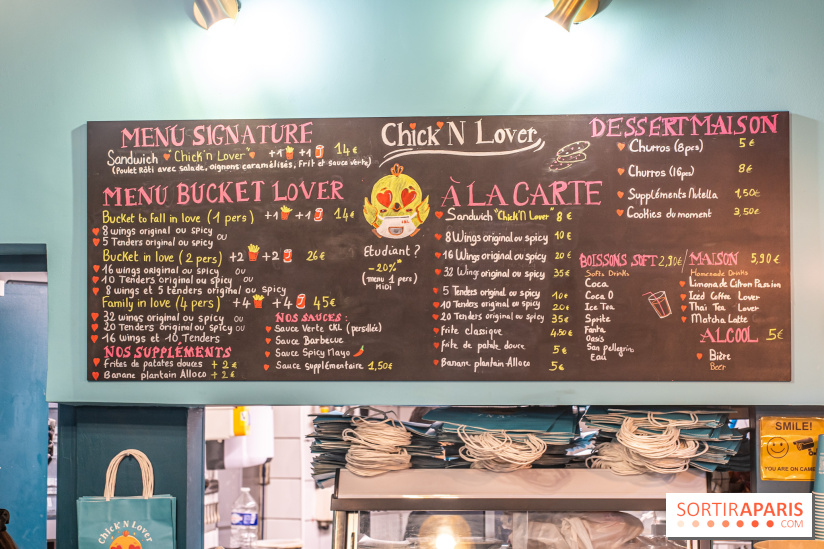 MENU SIGNATURE
Sandwich "Chick'n Lover" +1 +1 14€
(Poulet Rôti avec salade, oignons caramélisés, Frit et sauce verte)
MENU BUCKET LOVER
Bucket to fall in love (1 pers) +1 +1 14€
8 wings original ou spicy ou
5 Tenders original ou spicy
Bucket in love (2 pers) +2 +2 26€
16 wings original ou spicy ou
10 Tenders original ou spicy ou
8 wings et 5 tenders original ou spicy
Family in love (4 pers) +4 +4 45€
32 wings original ou spicy ou
20 Tenders original ou spicy ou
16 wings et 10 Tenders
NOS SUPPLÉMENTS
Frites de patates douces + 2€
Banane plantain Alloco + 2€
NOS SAUCES :
Sauce Verte CKL (persillée)
Sauce Barbecue
Sauce Spicy Mayo
Sauce supplémentaire 1,50€
Chick'N Lover
Etudiant ?
-20%*
(menu 1 pers)
MiDi
À LA CARTE
Sandwich "Chick'N Lover" 8€
8 Wings original ou spicy 10€
16 Wings original ou spicy 20€
32 Wing original ou spicy 35€
5 Tenders original ou spicy 10€
10 Tenders original ou spicy 20€
20 Tenders original ou spicy 35€
Frite classique 4,50€
Frite de patate douce 5€
Banane plantain Alloco 5€
DESSERT MAISON
Churros (8pcs) 5€
Churros (16pcs) 8€
Suppléments Nutella 1,50€
Cookies du moment 3,50€
BOISSONS SOFT 2,90€ / MAISON 5,90€
Softs Drinks
Coca
Coca 0
Ice Tea
Sprite
Fanta
Oasis
San pellegrino
Eau
Homemade Drinks
Limonade Citron Passion
Iced Coffee Lover
Thai Tea Lover
Matcha Latte
ALCOOL 5€
Bière
Beer
Chick'N Lover
SMILE!
YOU ARE ON CAMERA
SORTIRAPARIS
.COM